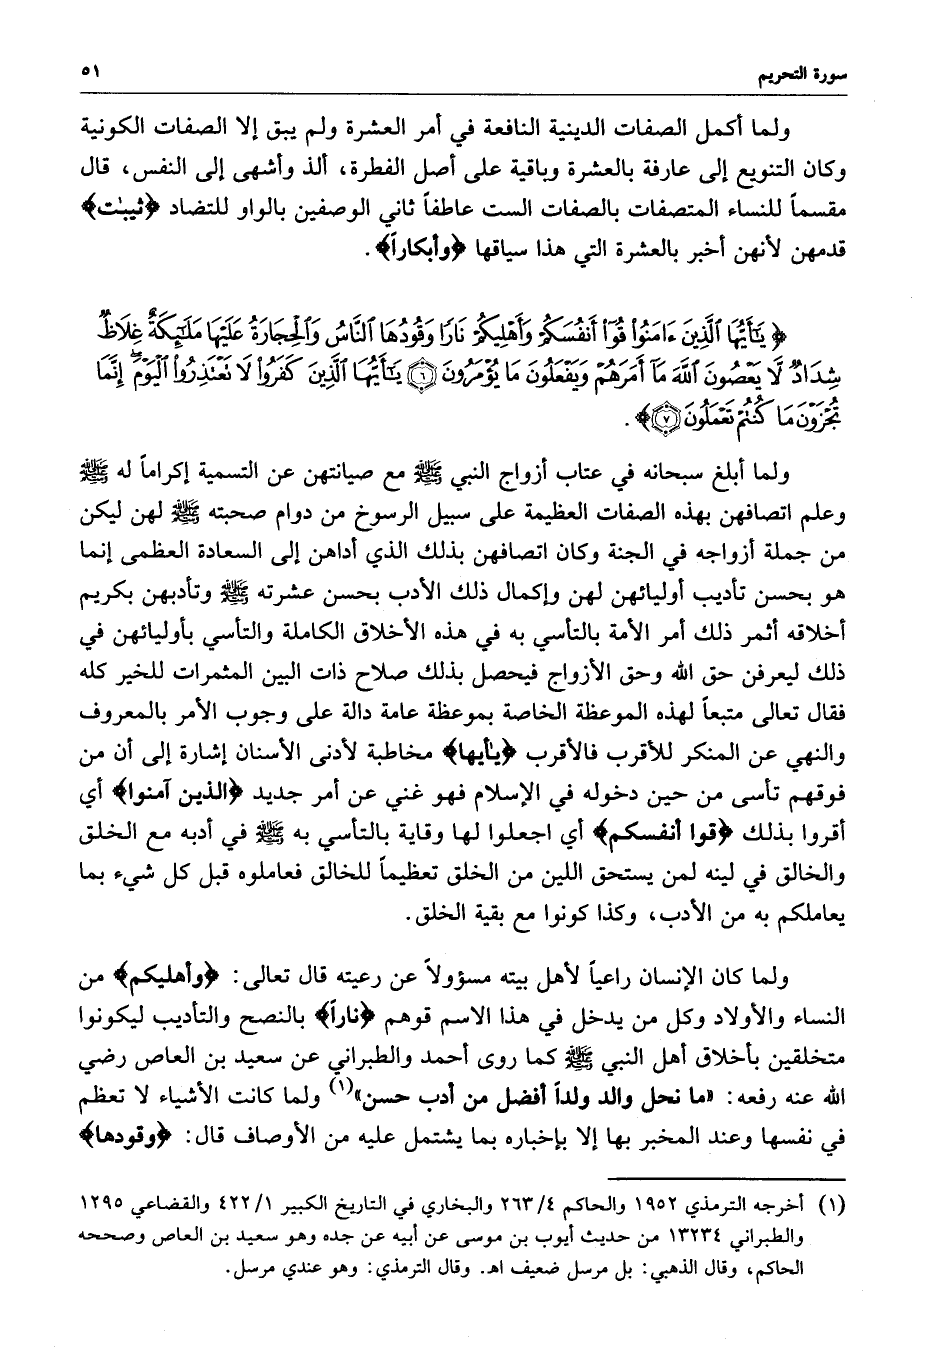 سورة التحريم ٥١
ولما أكمل الصفات الدينية النافعة في أمر العشرة ولم يبق إلا الصفات الكونية
وكان التنويع إلى عارفة بالعشرة وباقية على أصل الفطرة، ألذ وأشهى إلى النفس، قال
مقسماً للنساء المتصفات بالصفات الست عاطفاً ثاني الوصفين بالواو للتضاد ﴿ثيبٰت﴾
قدمهن لأنهن أخبر بالعشرة التي هذا سياقها ﴿وأبكاراً﴾.
﴿ يَٰٓأَيُّهَا ٱلَّذِينَ ءَامَنُوا۟ قُوٓا۟ أَنفُسَكُمْ وَأَهْلِيكُمْ نَارًا وَقُودُهَا ٱلنَّاسُ وَٱلْحِجَارَةُ عَلَيْهَا مَلَٰٓئِكَةٌ غِلَاظٌ
شِدَادٌ لَّا يَعْصُونَ ٱللَّهَ مَآ أَمَرَهُمْ وَيَفْعَلُونَ مَا يُؤْمَرُونَ ٦ يَٰٓأَيُّهَا ٱلَّذِينَ كَفَرُوا۟ لَا تَعْتَذِرُوا۟ ٱلْيَوْمَ ۖ إِنَّمَا
تُجْزَوْنَ مَا كُنتُمْ تَعْمَلُونَ ٧﴾.
ولما أبلغ سبحانه في عتاب أزواج النبي ﷺ مع صيانتهن عن التسمية إكراماً له ﷺ
وعلم اتصافهن بهذه الصفات العظيمة على سبيل الرسوخ من دوام صحبته ﷺ لهن ليكن
من جملة أزواجه في الجنة وكان اتصافهن بذلك الذي أداهن إلى السعادة العظمى إنما
هو بحسن تأديب أوليائهن لهن وإكمال ذلك الأدب بحسن عشرته ﷺ وتأدبهن بكريم
أخلاقه أثمر ذلك أمر الأمة بالتأسي به في هذه الأخلاق الكاملة والتأسي بأوليائهن في
ذلك ليعرفن حق الله وحق الأزواج فيحصل بذلك صلاح ذات البين المثمرات للخير كله
فقال تعالى متبعاً لهذه الموعظة الخاصة بموعظة عامة دالة على وجوب الأمر بالمعروف
والنهي عن المنكر للأقرب فالأقرب ﴿يٰأيها﴾ مخاطبة لأدنى الأسنان إشارة إلى أن من
فوقهم تأسى من حين دخوله في الإسلام فهو غني عن أمر جديد ﴿الذين آمنوا﴾ أي
أقروا بذلك ﴿قوا أنفسكم﴾ أي اجعلوا لها وقاية بالتأسي به ﷺ في أدبه مع الخلق
والخالق في لينه لمن يستحق اللين من الخلق تعظيماً للخالق فعاملوه قبل كل شيء بما
يعاملكم به من الأدب، وكذا كونوا مع بقية الخلق.
ولما كان الإنسان راعياً لأهل بيته مسؤولاً عن رعيته قال تعالى: ﴿وأهليكم﴾ من
النساء والأولاد وكل من يدخل في هذا الاسم قوهم ﴿ناراً﴾ بالنصح والتأديب ليكونوا
متخلقين بأخلاق أهل النبي ﷺ كما روى أحمد والطبراني عن سعيد بن العاص رضي
الله عنه رفعه: «ما نحل والد ولداً أفضل من أدب حسن»(١) ولما كانت الأشياء لا تعظم
في نفسها وعند المخبر بها إلا بإخباره بما يشتمل عليه من الأوصاف قال: ﴿وقودها﴾
(١) أخرجه الترمذي ١٩٥٢ والحاكم ٤/ ٢٦٣ والبخاري في التاريخ الكبير ١/ ٤٢٢ والقضاعي ١٢٩٥
والطبراني ١٣٢٣٤ من حديث أيوب بن موسى عن أبيه عن جده وهو سعيد بن العاص وصححه
الحاكم، وقال الذهبي: بل مرسل ضعيف اهـ. وقال الترمذي: وهو عندي مرسل.